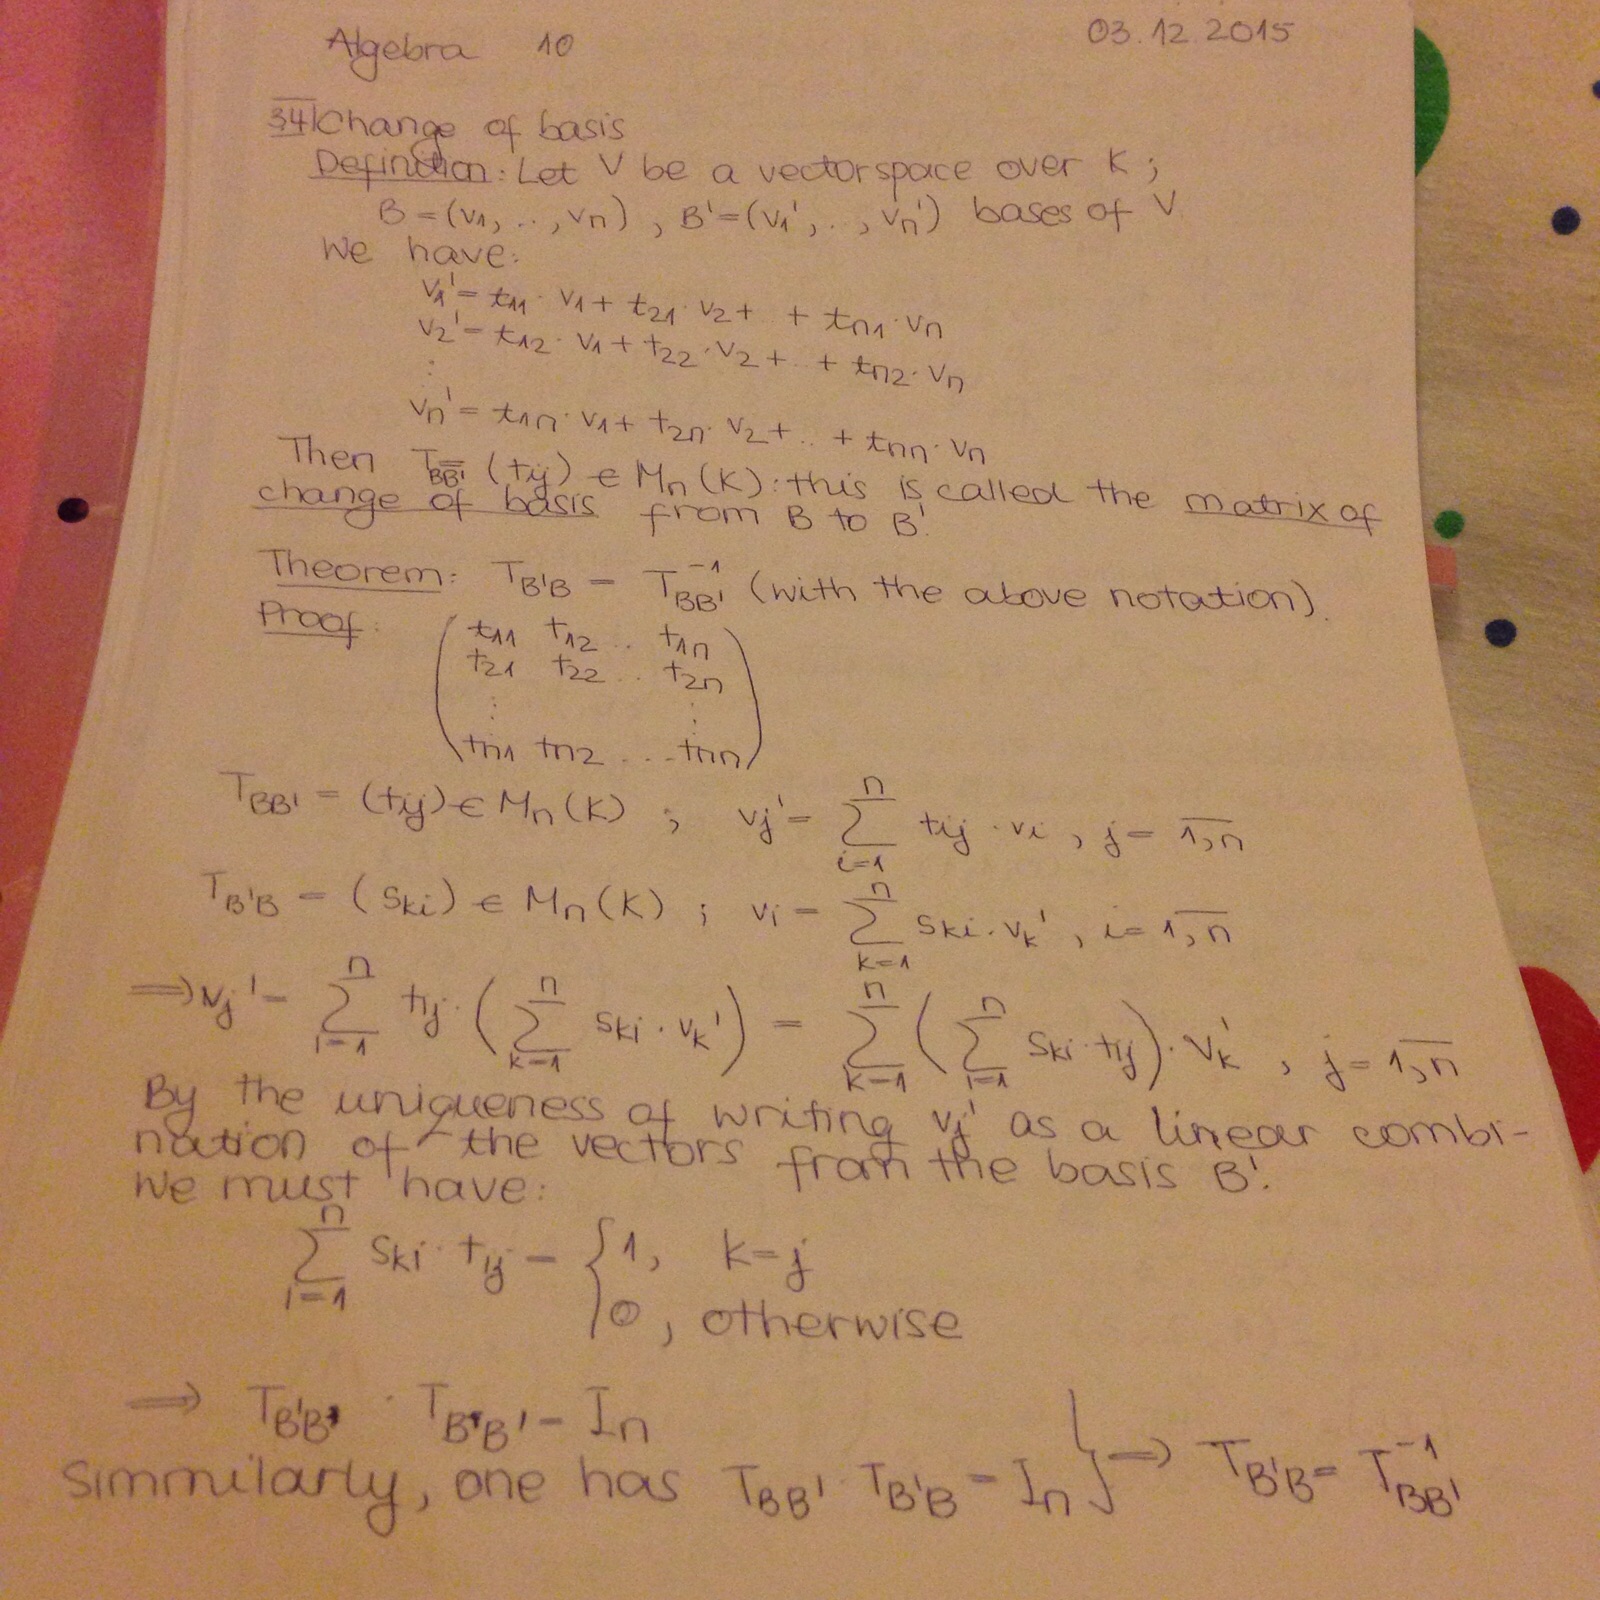 Algebra 10 03.12.2015
34 Change of basis
Definition: Let V be a vectorspace over K;
B = (v₁, .., vₙ), B' = (v₁', .., vₙ') bases of V
We have:
v₁' = t₁₁ · v₁ + t₂₁ · v₂ + .. + tₙ₁ · vₙ
v₂' = t₁₂ · v₁ + t₂₂ · v₂ + .. + tₙ₂ · vₙ
⋮
vₙ' = t₁ₙ · v₁ + t₂ₙ · v₂ + .. + tₙₙ · vₙ
Then T_BB' = (tᵢⱼ) ∈ Mₙ(K): this is called the matrix of
change of basis from B to B'.
Theorem: T_B'B = T_BB'⁻¹ (with the above notation).
Proof:
( t₁₁ t₁₂ .. t₁ₙ
t₂₁ t₂₂ .. t₂ₙ
⋮ ⋮
tₙ₁ tₙ₂ ... tₙₙ )
T_BB' = (tᵢⱼ) ∈ Mₙ(K) ; vⱼ' = ∑_{i=1}^{n} tᵢⱼ · vᵢ , j = \overline{1,n}
T_B'B = (s_ki) ∈ Mₙ(K) ; vᵢ = ∑_{k=1}^{n} s_ki · v_k' , i = \overline{1,n}
⟹ vⱼ' = ∑_{i=1}^{n} tᵢⱼ · (∑_{k=1}^{n} s_ki · v_k') = ∑_{k=1}^{n} (∑_{i=1}^{n} s_ki · tᵢⱼ) · v_k' , j = \overline{1,n}
By the uniqueness of writing vⱼ' as a linear combi-
nation of the vectors from the basis B'.
We must have:
∑_{i=1}^{n} s_ki · tᵢⱼ = { 1, k = j
0, otherwise
⟹ T_B'B · T_BB' = Iₙ
Simmilarly, one has T_BB' · T_B'B = Iₙ } ⟹ T_B'B = T_BB'⁻¹